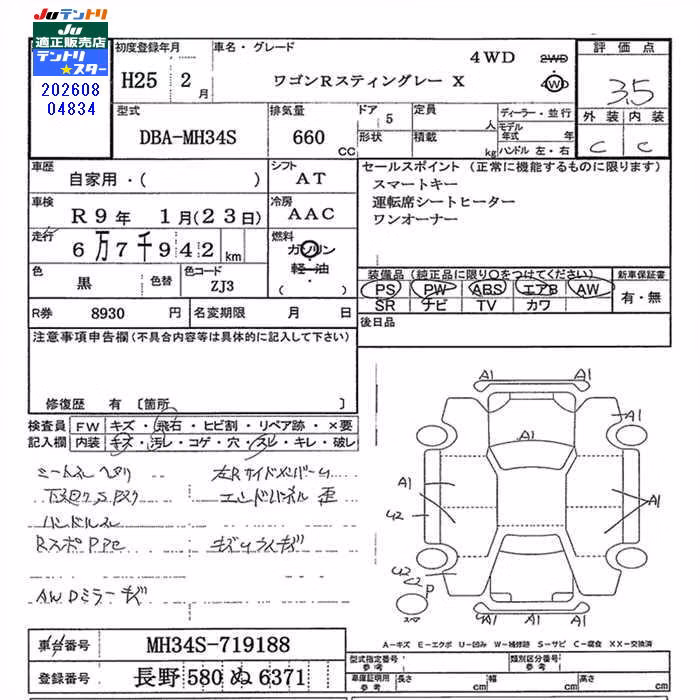 Juテントリ
Ju
適正販売店
テントリ
★スター
202608
04834
初度登録年月
H25 2 月
車名・グレード
4WD
ワゴンRスティングレー X
2WD
4WD
評価点
3.5
外装 内装
C C
型式
DBA-MH34S
排気量
660 CC
ドア 5
形状
定員 人
積載 kg
ディーラー・並行
モデル年式 年
ハンドル 左・右
車歴
自家用・( )
シフト
AT
車検
R9年 1月(23日)
冷房
AAC
走行
6万7千942 km
燃料
ガソリン
軽・油
( )
色
黒
色替
色コード
ZJ3
R券 8930 円
名変期限 月 日
セールスポイント(正常に機能するものに限ります)
スマートキー
運転席シートヒーター
ワンオーナー
装備品(純正品に限り○をつけてください)
PS PW ABS エアB AW
SR ナビ TV カワ
新車保証書
有・無
後日品
注意事項申告欄(不具合内容等は具体的に記入して下さい)
修復歴 有 〔箇所 〕
検査員
記入欄
FW キズ・飛石・ヒビ割・リペア跡・×要
内装 キズ・汚レ・コゲ・穴・スレ・キレ・破レ
左Rサイドメンバー
ハンドルスレ
エンドパネル 歪
AWDミラーキズ
A1 A1
A1
A1
A1
A1
U2
U2
P
スペア
A1 A1 A1
A-キズ E-エクボ U-凹み W-補修跡 S-サビ C-腐食 XX-交換済
車台番号 MH34S-719188
登録番号 長野 580 ぬ 6371
型式指定番号
類別区分番号
車庫証明用参考
長さ cm
幅 cm
高さ cm